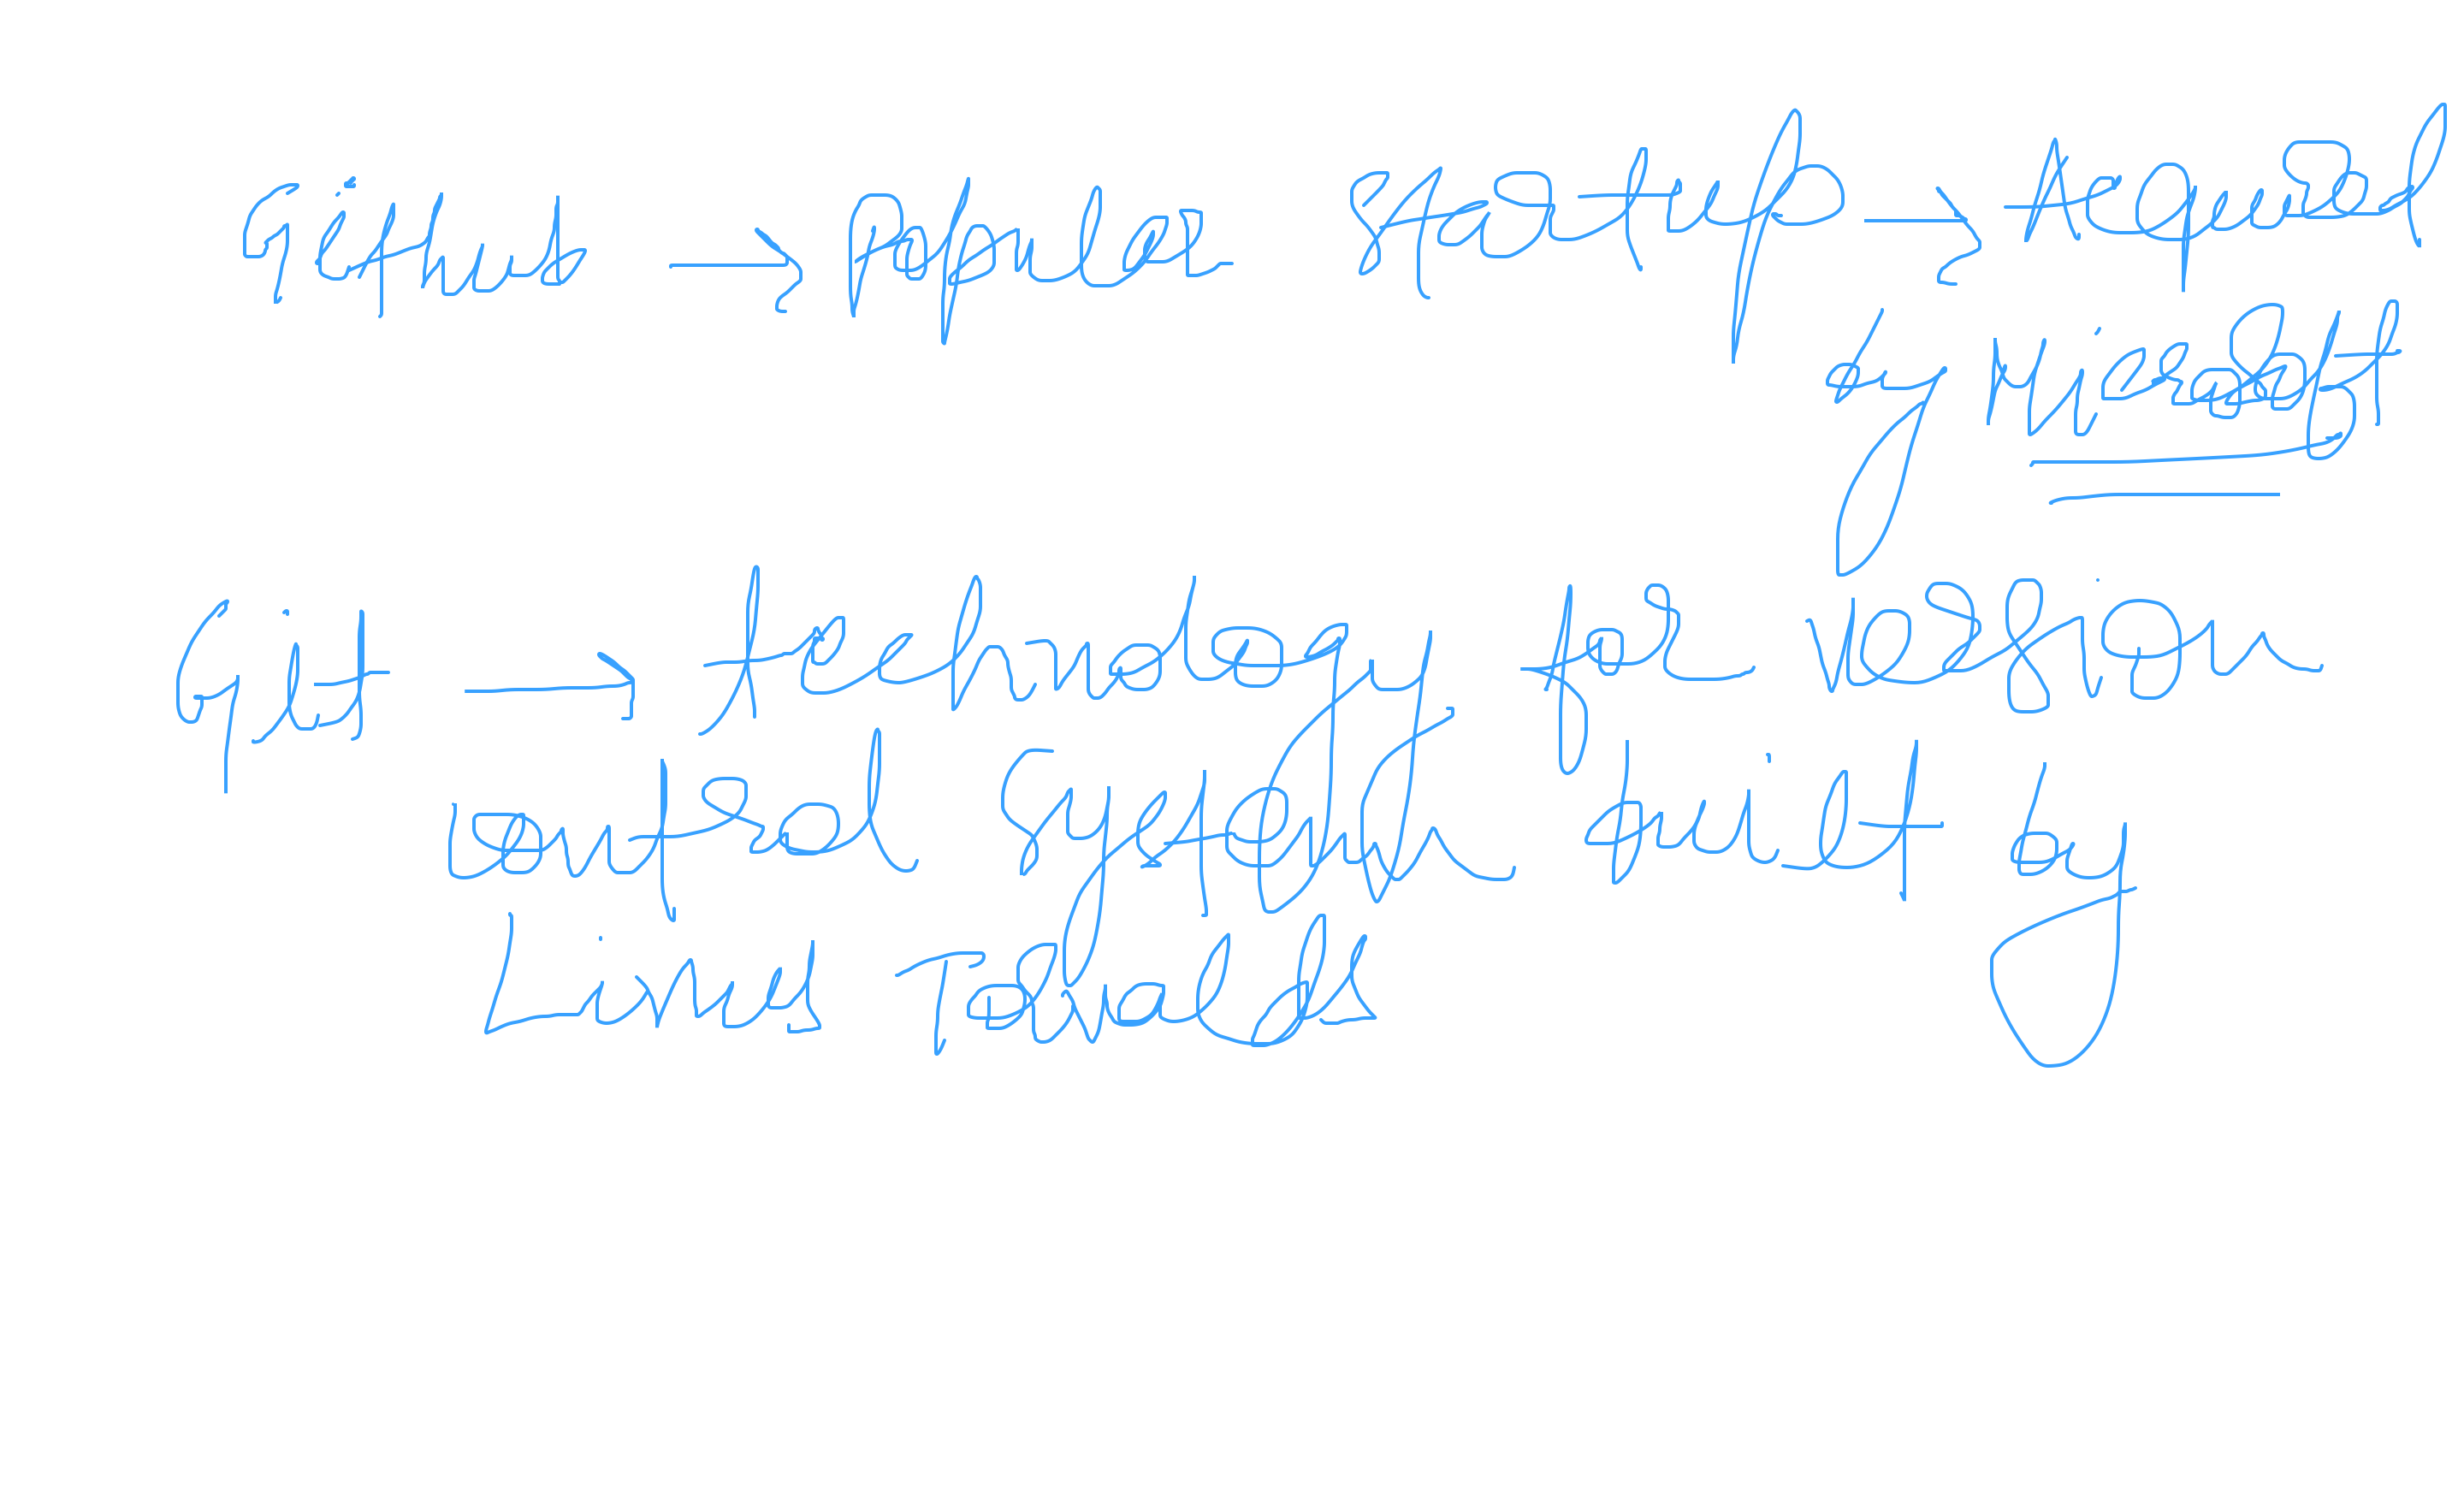 Github → Popular startup → acquired
by Microsoft
Git → technology for version
control system built by
Linus Torvalds